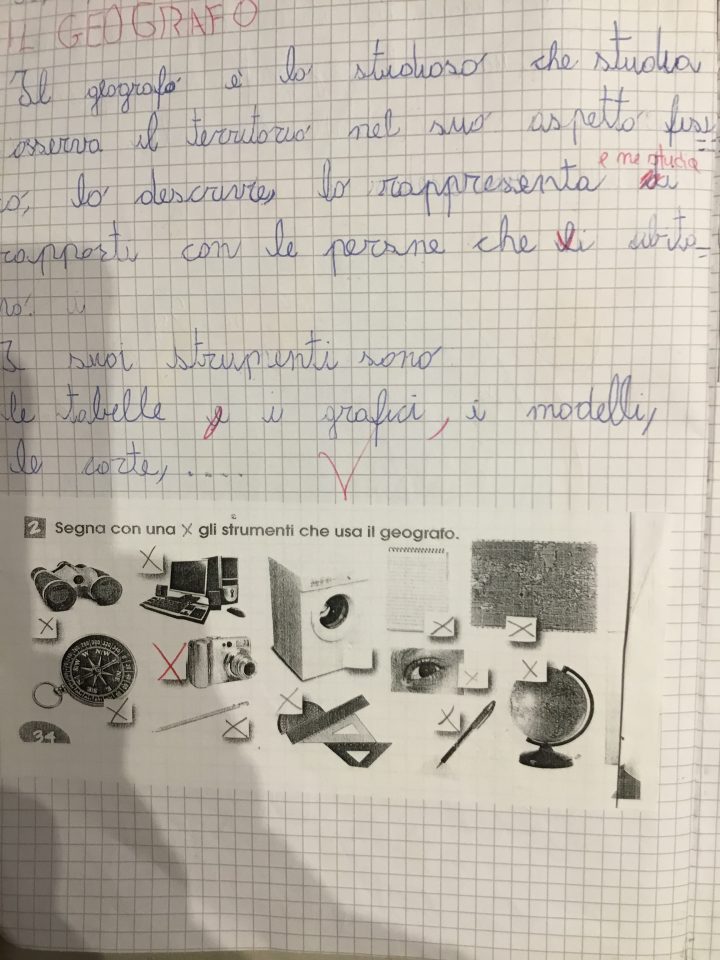 IL GEOGRAFO
Il geografo è lo studioso che studia
osserva il territorio nel suo aspetto fisi=
co, lo descrive, lo rappresenta e ne studia i
rapporti con le persone che li abita=
no.
I suoi strumenti sono
le tabelle i grafici, i modelli,
le carte, .....
2 Segna con una X gli strumenti che usa il geografo.
34